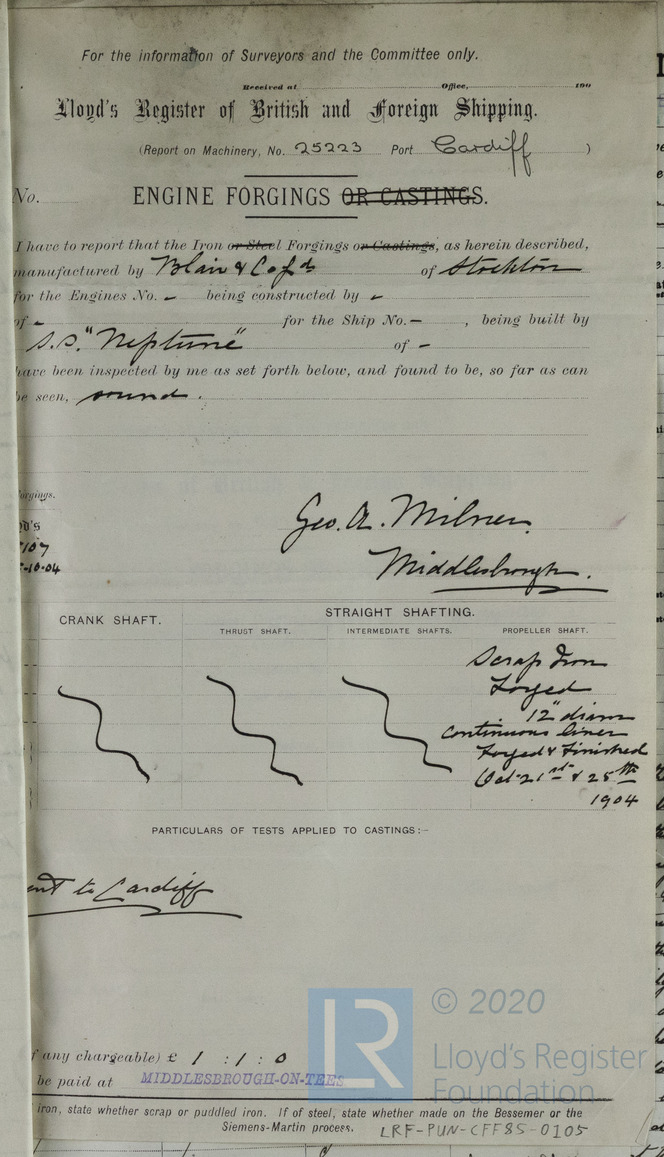 For the information of Surveyors and the Committee only.
Received at Office, 190
Lloyd's Register of British and Foreign Shipping.
(Report on Machinery, No. 25223 Port Cardiff )
No. ENGINE FORGINGS OR CASTINGS.
I have to report that the Iron or Steel Forgings or Castings, as herein described,
manufactured by Blair & Co Ld of Stockton
for the Engines No. - being constructed by -
of - for the Ship No. - , being built by
S.S. "Neptune" of -
have been inspected by me as set forth below, and found to be, so far as can
be seen, sound.
orgings.
d's
107
-10.04
Geo. A. Milner.
Middlesbrough.
CRANK SHAFT. STRAIGHT SHAFTING.
THRUST SHAFT. INTERMEDIATE SHAFTS. PROPELLER SHAFT.
Scrap Iron
Forged
12" diam
continuous liner
Forged & Finished
Oct 21st & 25th
1904
PARTICULARS OF TESTS APPLIED TO CASTINGS:-
ent to Cardiff
f any chargeable) £ 1 : 1 : 0
be paid at MIDDLESBROUGH-ON-TEES
iron, state whether scrap or puddled iron. If of steel, state whether made on the Bessemer or the
Siemens-Martin process. LRF-PUN-CFF85-0105
LR
© 2020
Lloyd's Register
Foundation